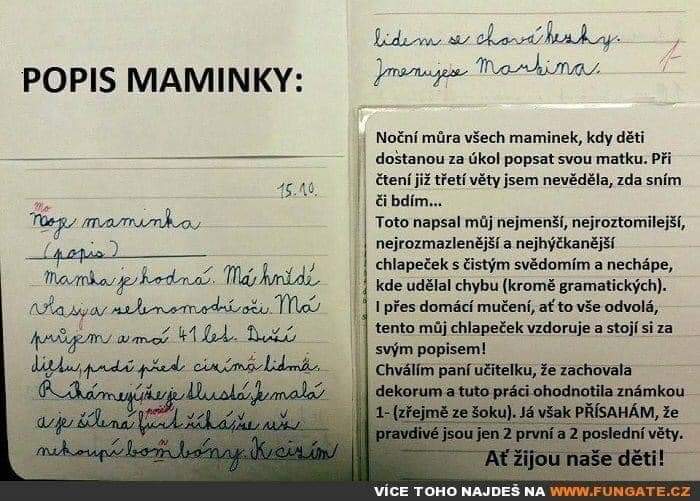 POPIS MAMINKY:
15.10.
Mo
Moje maminka
(popis)
Mamka je hodná. Má hnědé
vlasy a zelenomodré oči. Má
průjem a má 41 let. Drží
dietu, prdí před cizíma lidma.
Říkáme jí, že je tlustá. Je malá
pořád
a je šílená furt říká, že už
nekoupí bombóny. K cizím
lidem se chová hezky.
Jmenuje se Martina.
1-
Noční můra všech maminek, kdy děti
dostanou za úkol popsat svou matku. Při
čtení již třetí věty jsem nevěděla, zda sním
či bdím...
Toto napsal můj nejmenší, nejroztomilejší,
nejrozmazlenější a nejhýčkanější
chlapeček s čistým svědomím a nechápe,
kde udělal chybu (kromě gramatických).
I přes domácí mučení, ať to vše odvolá,
tento můj chlapeček vzdoruje a stojí si za
svým popisem!
Chválím paní učitelku, že zachovala
dekorum a tuto práci ohodnotila známkou
1- (zřejmě ze šoku). Já však PŘÍSAHÁM, že
pravdivé jsou jen 2 první a 2 poslední věty.
Ať žijou naše děti!
VÍCE TOHO NAJDEŠ NA WWW.FUNGATE.CZ